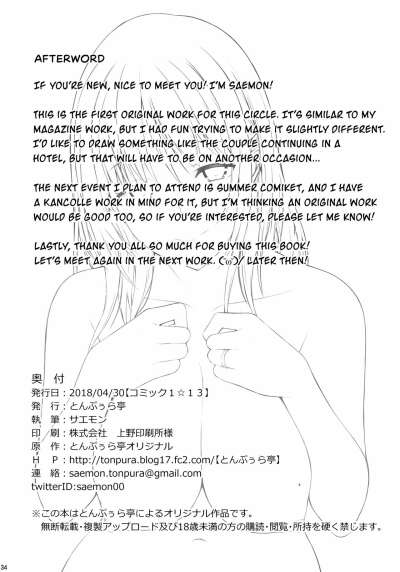 AFTERWORD
IF YOU'RE NEW, NICE TO MEET YOU! I'M SAEMON!
THIS IS THE FIRST ORIGINAL WORK FOR THIS CIRCLE. IT'S SIMILAR TO MY
MAGAZINE WORK, BUT I HAD FUN TRYING TO MAKE IT SLIGHTLY DIFFERENT.
I'D LIKE TO DRAW SOMETHING LIKE THE COUPLE CONTINUING IN A
HOTEL, BUT THAT WILL HAVE TO BE ON ANOTHER OCCASION...
THE NEXT EVENT I PLAN TO ATTEND IS SUMMER COMIKET, AND I HAVE
A KANCOLLE WORK IN MIND FOR IT, BUT I'M THINKING AN ORIGINAL WORK
WOULD BE GOOD TOO, SO IF YOU'RE INTERESTED, PLEASE LET ME KNOW!
LASTLY, THANK YOU ALL SO MUCH FOR BUYING THIS BOOK!
LET'S MEET AGAIN IN THE NEXT WORK. ('ω')/ LATER THEN!
奥 付
発行日：2018/04/30【コミック1☆13】
発 行：とんぶぅら亭
執 筆：サエモン
印 刷：株式会社 上野印刷所様
原 作：とんぶぅら亭オリジナル
H P：http://tonpura.blog17.fc2.com/【とんぶぅら亭】
連 絡：saemon.tonpura@gmail.com
twitterID:saemon00
※この本はとんぶぅら亭によるオリジナル作品です。
無断転載・複製アップロード及び18歳未満の方の購読・閲覧・所持を硬く禁じます。
34